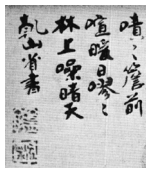 嘖々簷前
喧暖日嘐々
林上噪晴天
乾山省書